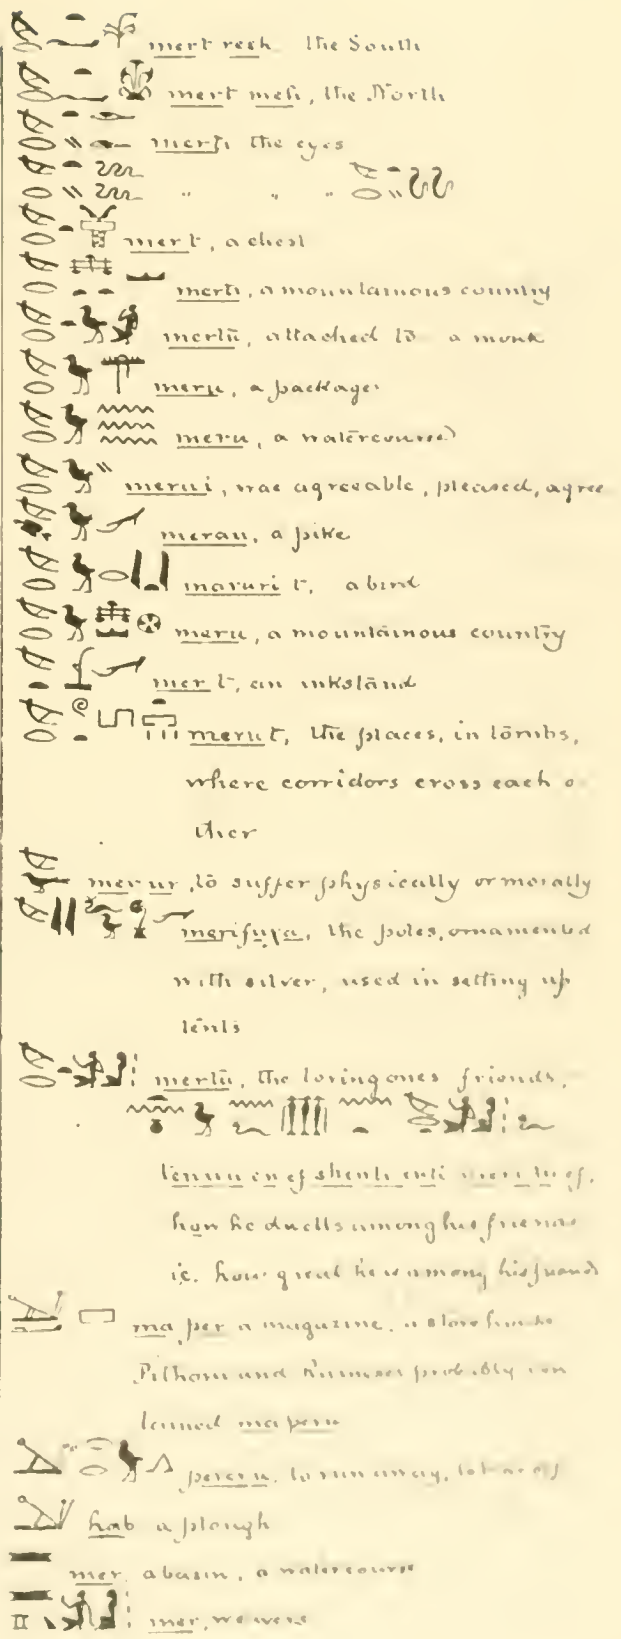 mert resh the South
mert meh, the North
merti the eyes
" " "
mert, a chest
merti, a mountainous country
mertu, attached to a monk
meru, a package
meru, a watercourse
merui, was agreeable, pleased, agree
merau, a pike
maruri t, a bird
meru, a mountainous country
mer t, an inkstand
merut, the places, in tombs,
where corridors cross each o
ther
mer ur, to suffer physically or morally
merifuya, the poles, ornamented
with silver, used in setting up
tents
mertu, the loving ones friends,
en ef shenti enti
how he duells among his friends
ie. how great he is among his friends
ma per a magazine, a store house
Pithom and probably con
tained ma peru
pereru, to run away,
hab a plough
mer a basin, a watercourse
mer, we were